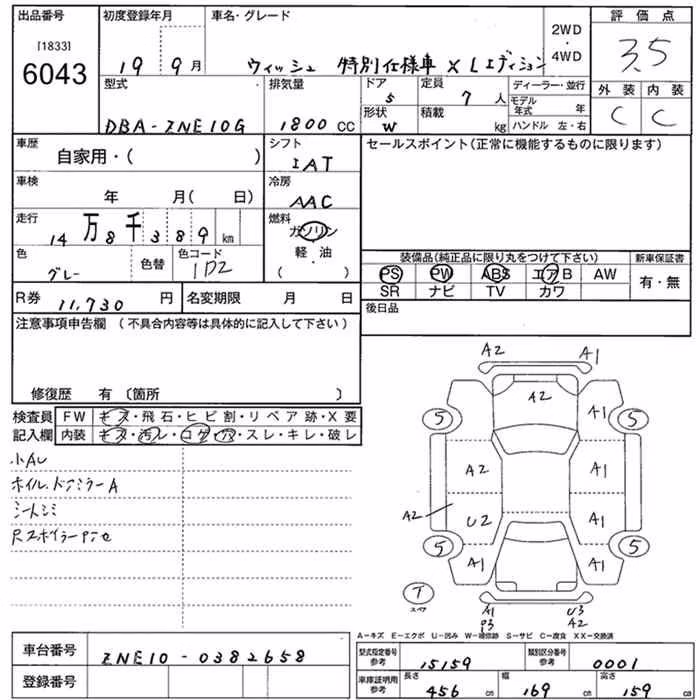 出品番号
[1833]
6043
初度登録年月
19 9月
車名・グレード
ウィッシュ 特別仕様車 X Lエディション
2WD
・
4WD
評価点
3.5
外装 内装
C C
型式
DBA-ZNE10G
排気量
1800 CC
ドア
5
形状
W
定員
7 人
積載
kg
ディーラー・並行
モデル年式 年
ハンドル 左・右
車歴
自家用・( )
シフト
IAT
セールスポイント(正常に機能するものに限ります)
車検
年 月( 日)
冷房
AAC
走行
14万8千389km
燃料
ガソリン
軽・油
( )
色
グレー
色替
色コード
1D2
装備品(純正品に限り丸をつけて下さい)
PS PW ABS エアB AW
SR ナビ TV カワ
新車保証書
有・無
R券 11,730 円
名変期限 月 日
後日品
注意事項申告欄 (不具合内容等は具体的に記入して下さい)
修復歴 有〔箇所 〕
検査員
記入欄
FW キズ・飛石・ヒビ割・リペア跡・X要
内装 キズ・汚レ・コゲ・穴・スレ・キレ・破レ
小AU
ホイル、ドアミラーA
シートシミ
A2 A1
A2
A1
5 5
A2 A1
A2 U2 A1
5 5
A1 A1
T
スペア
A1 U3
P3 A2
A-キズ E-エクボ U-凹み W-補修跡 S-サビ C-腐食 XX-交換済
車台番号 ZNE10-0382658
登録番号
型式指定番号
参考
15159
類別区分番号
参考
0001
車庫証明用
参考
長さ 456 cm
幅 169 cm
高さ 159 cm